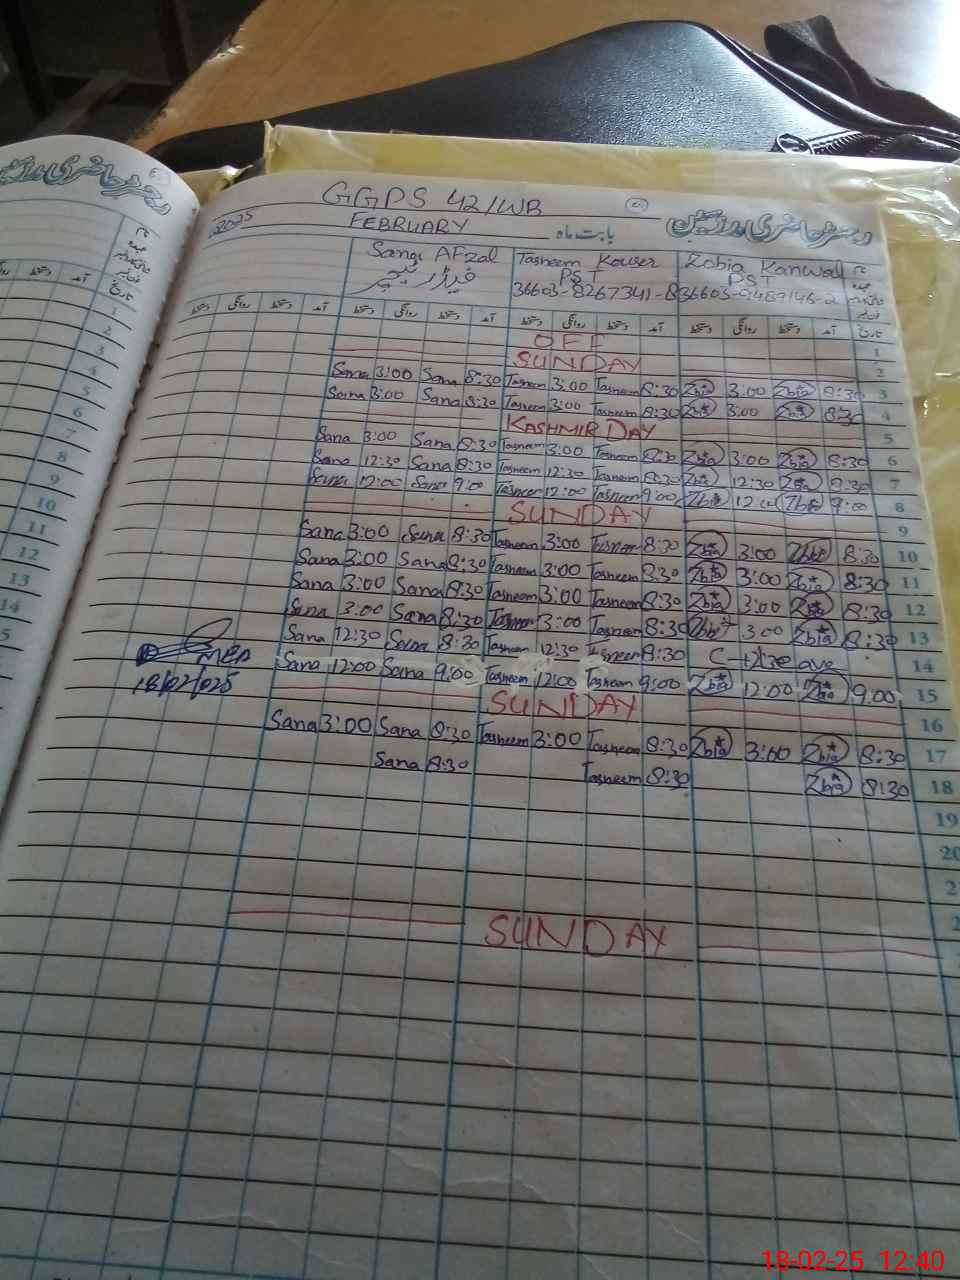 GGPS 42/WB
رجسٹر حاضری مدرسین
2025 FEBRUARY بابت ماہ
Sana AFzal Tasneem Kouser Zobia Kanwal نام
فیڈر ٹیچر PST PST عہدہ
36603-8267341-8 36603-9489146-2
دستخط روانگی دستخط آمد دستخط روانگی دستخط آمد دستخط روانگی دستخط آمد تاریخ
OFF 1
SUNDAY 2
Sana 3:00 Sana 8:30 Tasneem 3:00 Tasneem 8:30 Zbia 3:00 Zbia 8:30 3
Sana 3:00 Sana 8:30 Tasneem 3:00 Tasneem 8:30 Zbia 3:00 Zbia 8:30 4
KASHMIR DAY 5
Sana 3:00 Sana 8:30 Tasneem 3:00 Tasneem 8:30 Zbia 3:00 Zbia 8:30 6
Sana 12:30 Sana 8:30 Tasneem 12:30 Tasneem 8:30 Zbia 12:30 Zbia 8:30 7
Sana 12:00 Sana 9:00 Tasneem 12:00 Tasneem 9:00 Zbia 12:00 Zbia 9:00 8
SUNDAY 9
Sana 3:00 Sana 8:30 Tasneem 3:00 Tasneem 8:30 Zbia 3:00 Zbia 8:30 10
Sana 3:00 Sana 8:30 Tasneem 3:00 Tasneem 8:30 Zbia 3:00 Zbia 8:30 11
Sana 3:00 Sana 8:30 Tasneem 3:00 Tasneem 8:30 Zbia 3:00 Zbia 8:30 12
Sana 3:00 Sana 8:30 Tasneem 3:00 Tasneem 8:30 Zbia 3:00 Zbia 8:30 13
Sana 12:30 Sana 8:30 Tasneem 12:30 Tasneem 8:30 14
MEA
Sana 12:00 Sana 9:00 Tasneem 12:00 Tasneem 9:00 Zbia 12:00 Zbia 9:00 15
18/02/2025
SUNDAY 16
Sana 3:00 Sana 8:30 Tasneem 3:00 Tasneem 8:30 Zbia 3:00 Zbia 8:30 17
Sana 8:30 Tasneem 8:30 Zbia 8:30 18
19
20
SUNDAY
رجسٹر حاضری مدرسین
نام
عہدہ
تاریخ
1
2
3
4
5
6
7
8
9
10
11
12
13
14
18-02-25 12:40